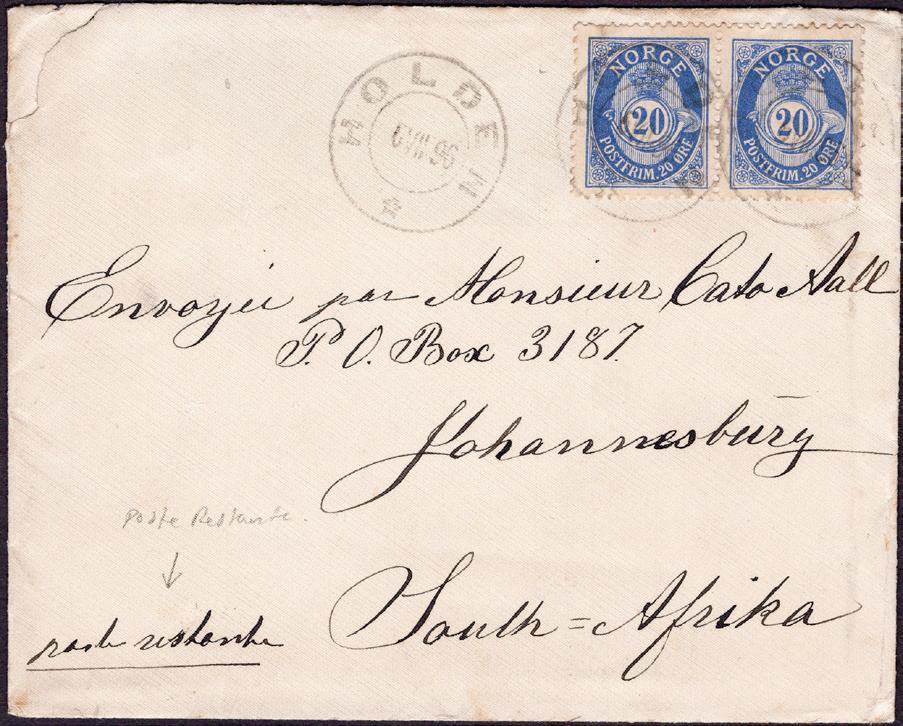 HOLDEN
6 VII 96
NORGE
20
POSTFRIM. 20 ØRE
NORGE
20
POSTFRIM. 20 ØRE
Envoyée par Monsieur Cato Aall
P. O. Box 3187.
Johannesburg
Poste Restante.
poste restante
South = Afrika